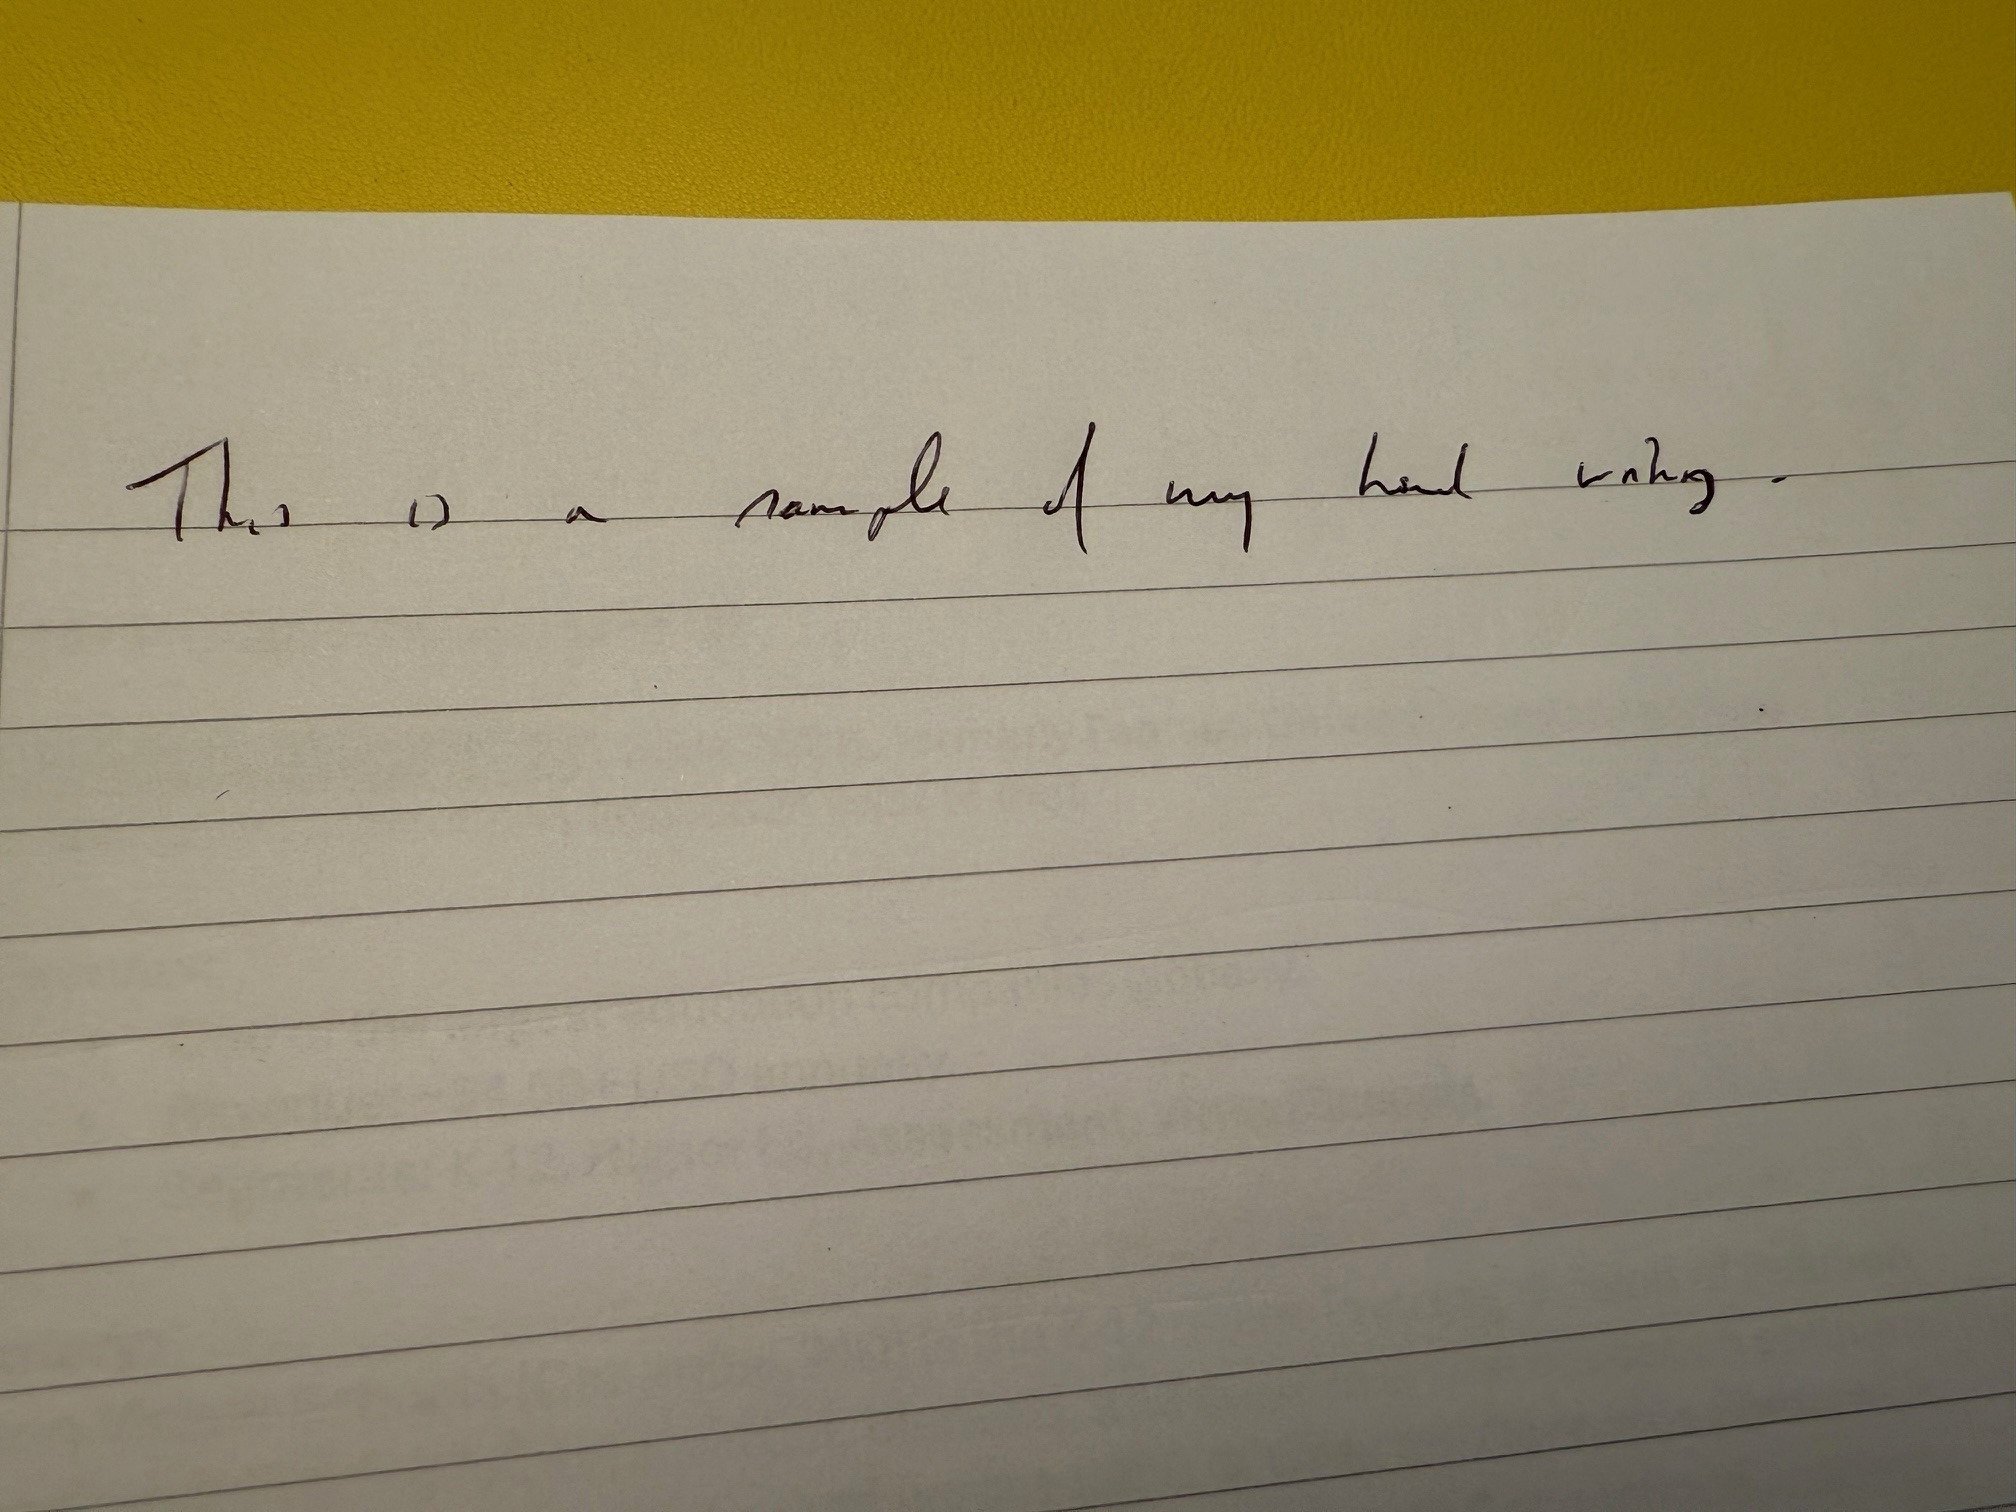 This is a sample of my hand writing.